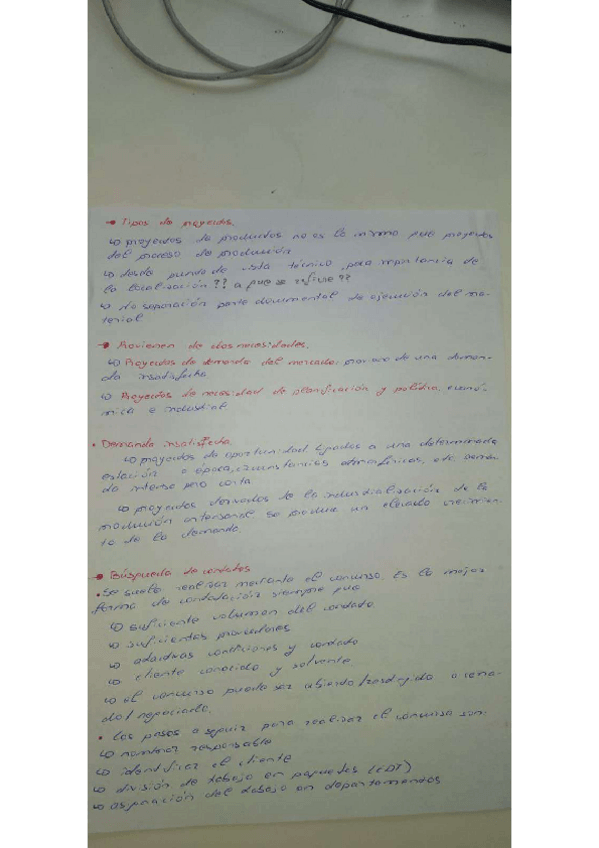 → Tipos de proyectos.
↳ proyectos de productos no es lo mismo que proyectos
del proceso de producción
↳ desde punto de vista técnico, poca importancia de
la localización ?? a que se refiere ??
↳ no separación parte documental de ejecución del ma-
terial
→ Provienen de dos necesidades.
↳ Proyectos de demanda del mercado: proviene de una deman-
da insatisfecha
↳ Proyectos de necesidad de planificación y política econó-
mica e industrial
• Demanda insatisfecha.
↳ proyectos de oportunidad ligados a una determinada
estación = época, circunstancias atmosféricas, etc
da intensa pero corta
↳ proyectos derivados de la industrialización de la
producción artesanal. Se produce un elevado crecimien-
to de la demanda.
→ Búsqueda de contratos
• Se suele realizar mediante el concurso. Es la mejor
forma de contratación siempre que
↳ suficiente volumen del contrato
↳ suficientes proveedores
↳ condiciones y contrato
↳ cliente conocido y solvente
↳ el concurso puede ser abierto/restringido o cerra-
do/negociado.
• Los pasos a seguir para realizar el concurso son:
↳ nombrar responsable
↳ identificar el cliente
↳ división de trabajo en paquetes (EDT)
↳ asignación del trabajo en departamentos